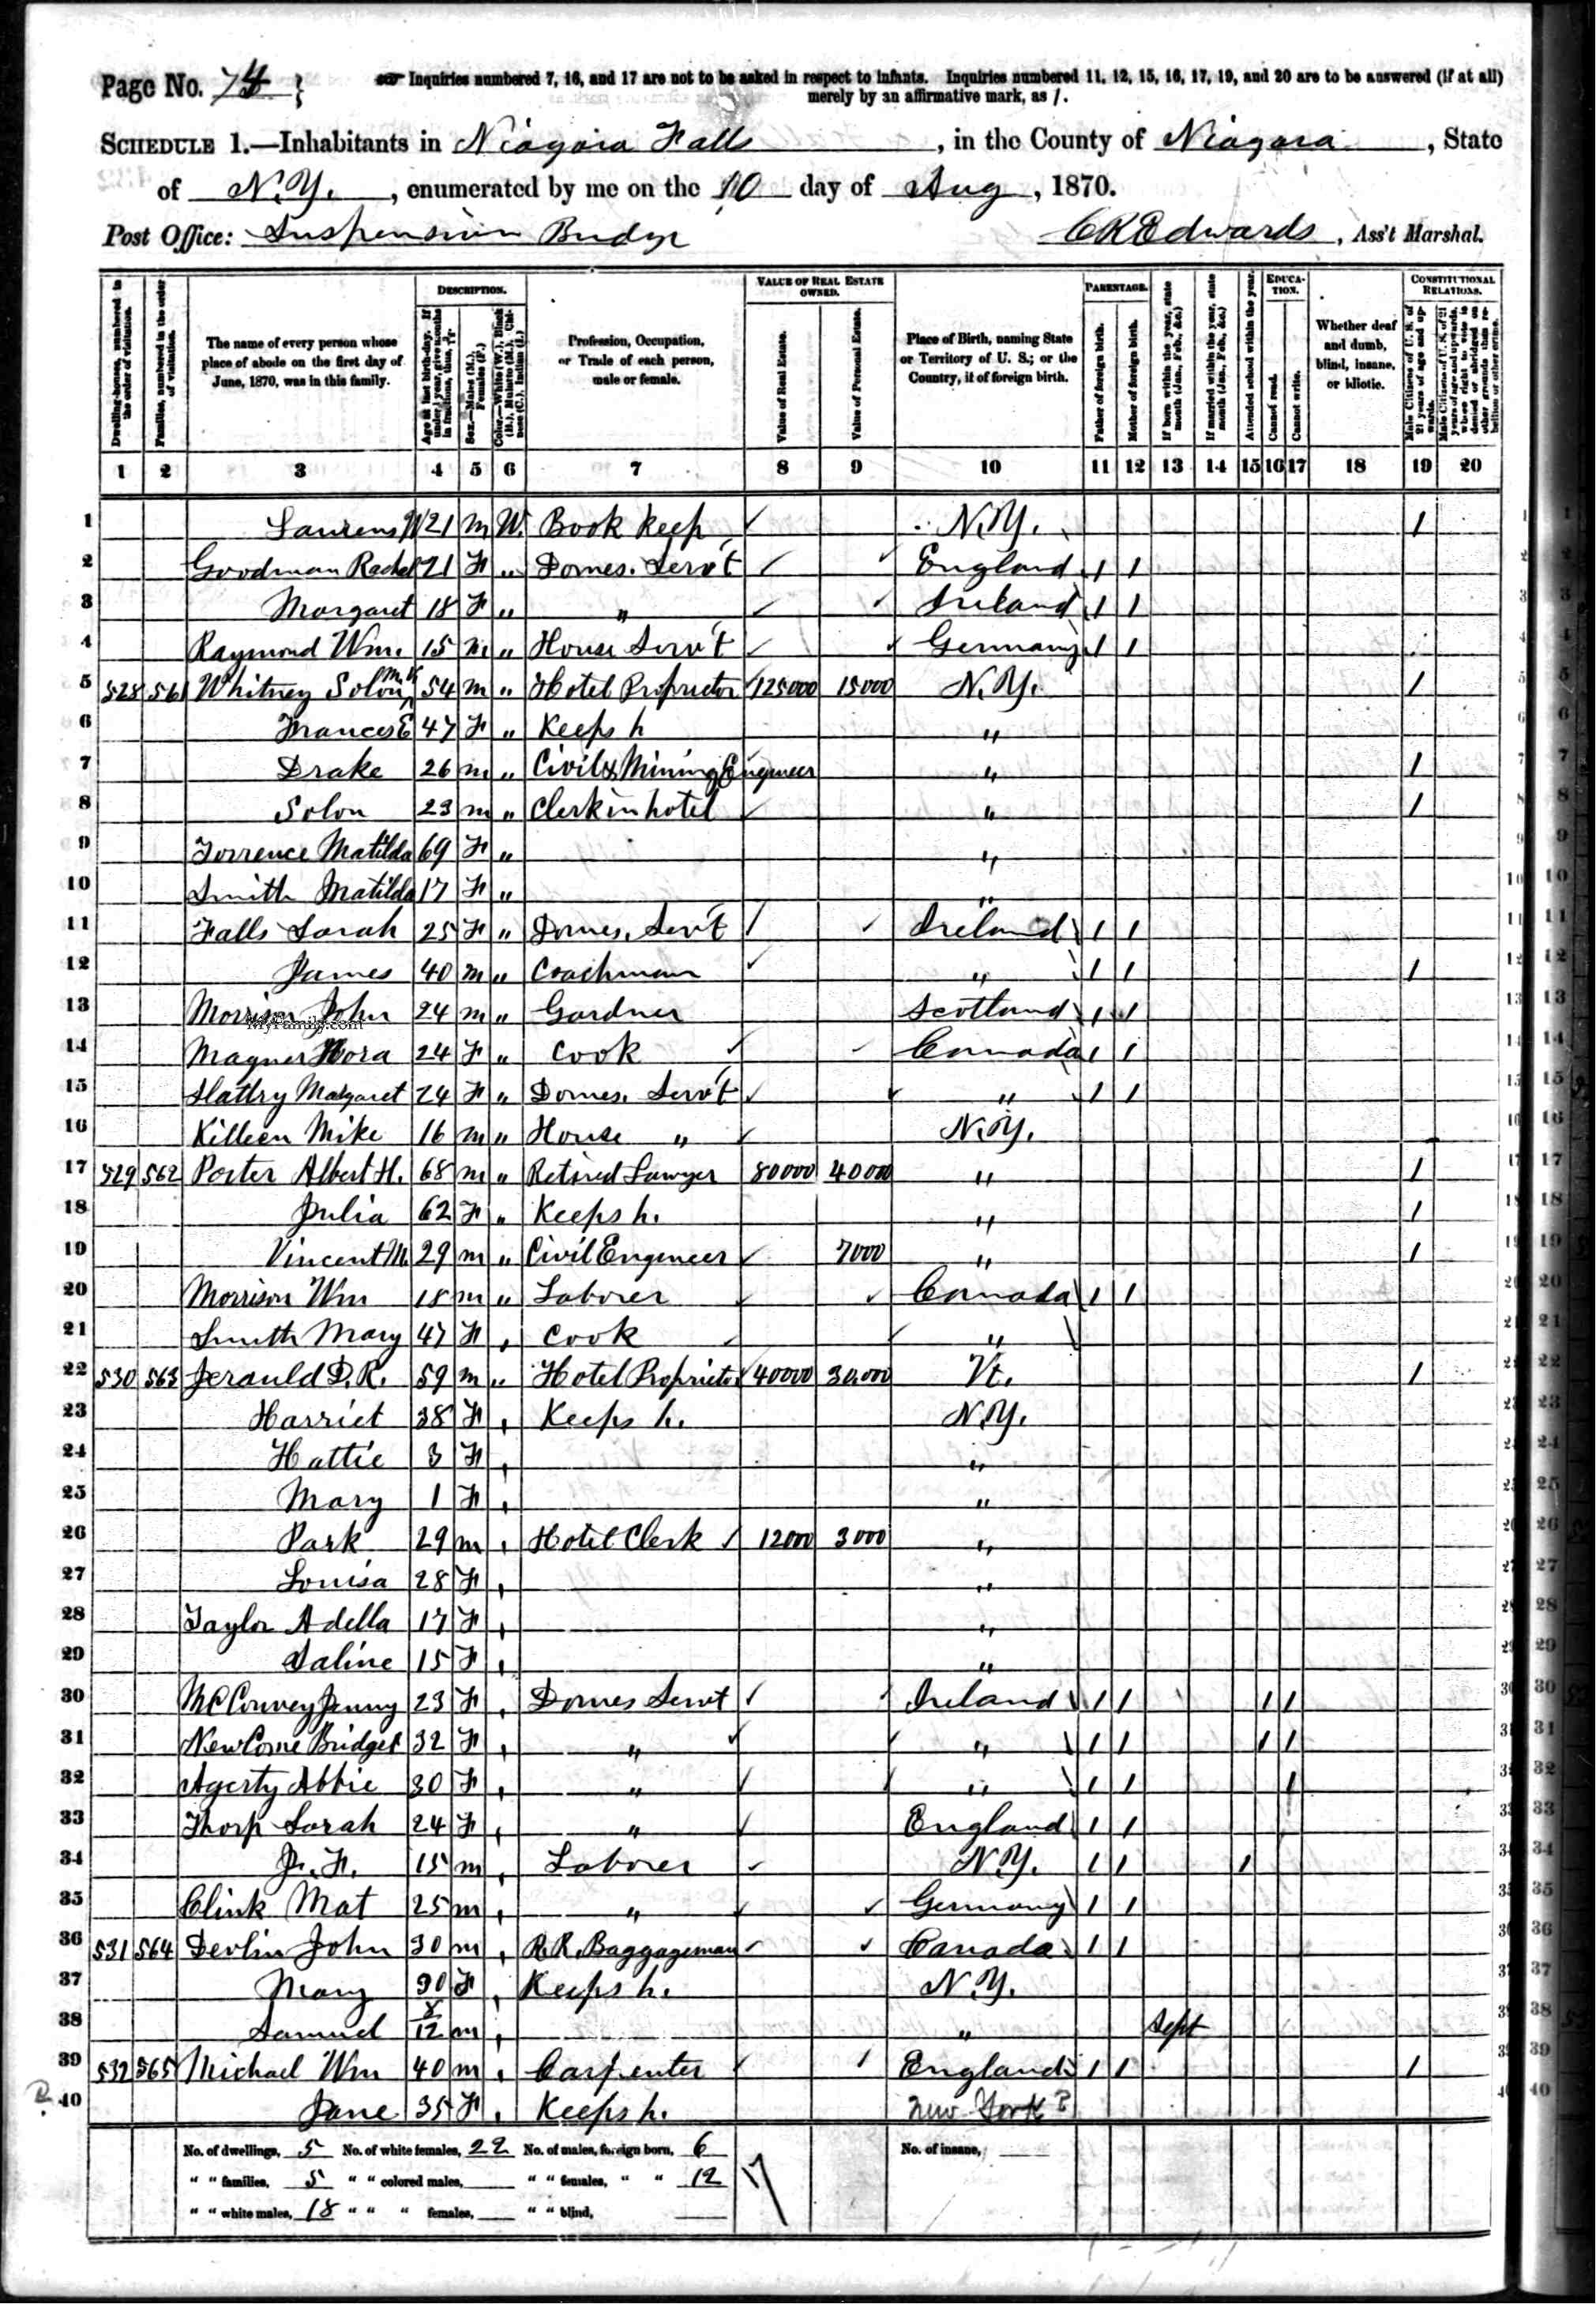 Page No. 74 Inquiries numbered 7, 16, and 17 are not to be asked in respect to infants. Inquiries numbered 11, 12, 15, 16, 17, 19, and 20 are to be answered (if at all)
merely by an affirmative mark, as /.
SCHEDULE 1.—Inhabitants in Niagara Falls, in the County of Niagara, State
of N.Y., enumerated by me on the 10 day of Aug, 1870.
Post Office: Suspension Bridge CR Edwards, Ass't Marshal.
DESCRIPTION. VALUE OF REAL ESTATE OWNED. PARENTAGE. EDUCATION. CONSTITUTIONAL RELATIONS.
Dwelling-houses, numbered in the order of visitation.
Families, numbered in the order of visitation.
The name of every person whose place of abode on the first day of June, 1870, was in this family.
Age at last birth-day. If under 1 year, give months in fractions, thus, 3/12
Sex.—Males (M.), Females (F.)
Color.—White (W.), Black (B.), Mulatto (M.), Chinese (C.), Indian (I.)
Profession, Occupation, or Trade of each person, male or female.
Value of Real Estate.
Value of Personal Estate.
Place of Birth, naming State or Territory of U. S.; or the Country, if of foreign birth.
Father of foreign birth.
Mother of foreign birth.
If born within the year, state month (Jan., Feb., &c.)
If married within the year, state month (Jan., Feb., &c.)
Attended school within the year.
Cannot read.
Cannot write.
Whether deaf and dumb, blind, insane, or idiotic.
Male Citizens of U. S. of 21 years of age and upwards.
Male Citizens of U. S. of 21 years of age and upwards, whose right to vote is denied or abridged on other grounds than rebellion or other crime.
1 2 3 4 5 6 7 8 9 10 11 12 13 14 15 16 17 18 19 20
1 Laurens W 21 m W. Book keep N.Y. 1
2 Goodman Rachel 21 F " Domes. Serv't England 1 1
3 Margaret 18 F " " Ireland 1 1
4 Raymond Wm. 15 m " House Serv't Germany 1 1
5 528 561 Whitney Solon M 54 m " Hotel Proprietor 125000 15000 N.Y. 1
6 Frances E 47 F " Keeps h "
7 Drake 26 m " Civil & Mining Engineer " 1
8 Solon 23 m " Clerk in hotel " 1
9 Torrence Matilda 69 F " "
10 Smith Matilda 17 F " "
11 Falls Sarah 25 F " Domes. Serv't Ireland 1 1
12 James 40 m " Coachman " 1 1 1
13 Morrison John 24 m " Gardner Scotland 1 1
MyFamily.com
14 Magner Nora 24 F " Cook Canada 1 1
15 Hattry Margaret 24 F " Domes. Serv't " 1 1
16 Killeen Mike 16 m " House " N.Y.
17 529 562 Porter Albert H. 68 m " Retired Lawyer 80000 40000 " 1
18 Julia 62 F " Keeps h. " 1
19 Vincent M. 29 m " Civil Engineer 7000 " 1
20 Morrison Wm 18 m " Laborer Canada 1 1
21 Smith Mary 47 F " Cook "
22 530 563 Jerauld D. R. 59 m " Hotel Proprietor 40000 30,000 Vt. 1
23 Harriet 38 F " Keeps h. N.Y.
24 Hattie 3 F " "
25 Mary 1 F " "
26 Park 29 m " Hotel Clerk 12000 3000 "
27 Louisa 28 F " "
28 Taylor Adella 17 F " "
29 Saline 15 F " "
30 McConvey Jenny 23 F " Domes Servt Ireland 1 1 1 1
31 NewCome Bridget 32 F " " " 1 1 1 1
32 Agerty Abbie 30 F " " " 1 1 1
33 Thorp Sarah 24 F " " England 1 1
34 J. F. 15 m " Laborer N.Y. 1 1 1
35 Clink Mat 25 m " " Germany 1 1
36 531 564 Devlin John 30 m " R.R. Baggageman Canada 1 1
37 Mary 30 F " Keeps h. N.Y.
38 Samuel 8/12 m " " Sept
39 532 565 Michael Wm 40 m " Carpenter England 1 1 1
40 Jane 35 F " Keeps h. New York?
No. of dwellings, 5 No. of white females, 22 No. of males, foreign born, 6 No. of insane,
" " families, 5 " " colored males, " " females, " " 12
" " white males, 18 " " " females, " " blind,